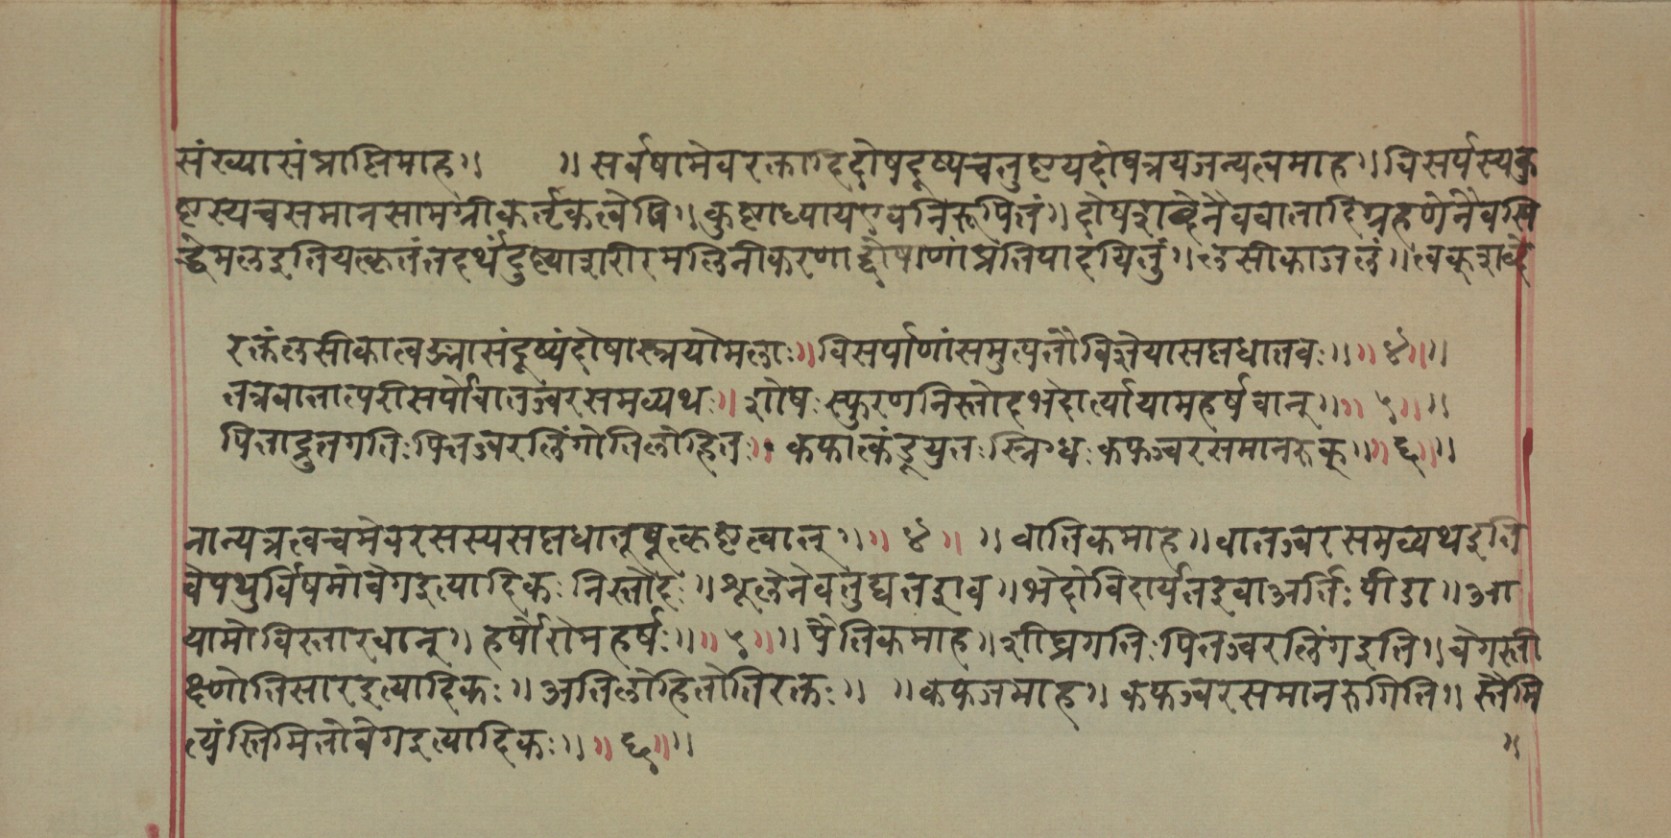 संख्यासंप्राप्तिमाह॥ ॥सर्वेषामेवरक्तादिदोषदूष्यचतुष्टयदोषत्रयजन्यत्वमाह॥विसर्पस्यकु
ष्टस्यचसमानसामग्रीकर्तृकत्वेपि॥कुष्टाध्यायएवनिरूपितं॥दोषशब्देनैववातादिग्रहणेनैवसि
द्धेमलइतियत्कृतंतदर्थंदुष्ट्याशरीरमलिनीकरणाद्दोषाणांप्रतिपादयितुं॥लसीकाजलं॥त्वक्शब्दे
रक्तंलसीकात्वङ्मासंदूष्यंदोषास्त्रयोमलाः॥विसर्पाणांसमुत्पत्तौविज्ञेयासप्तधातवः॥॥४॥॥
तत्रवातात्परीसर्पोवातज्वरसमव्यथः॥शोषःस्फुरणनिस्तोदभेदोर्त्यायामहर्षवान्॥॥५॥॥
पित्ताद्रुतगतिःपित्तज्वरलिंगोतिलोहितः॥कफात्कंडूयुतःस्निग्धःकफज्वरसमानरुक्॥॥६॥॥
नान्यत्रत्वचमेवरसस्यसप्तधातूषूत्कृष्टत्वात्॥॥४॥ ॥वातिकमाह॥वातज्वरसमव्यथइति
वेपथुर्विषमोवेगइत्यादिकःनिस्तोदः॥शूलेनेवतुद्यतइव॥भेदोविदार्यतइवाअर्तिःपीडा॥आ
यामोविस्तारवान्॥हर्षोरोमहर्षः॥॥५॥॥पैत्तिकमाह॥शीघ्रगतिःपित्तज्वरलिंगइति॥वेगस्ती
क्ष्णोतिसारइत्यादिकः॥अतिलोहितोतिरक्तः॥ ॥कफजमाह॥कफज्वरसमानरुगिति॥स्तैमि
त्यंस्तिमितोवेगइत्यादिकः॥॥६॥॥ ॥